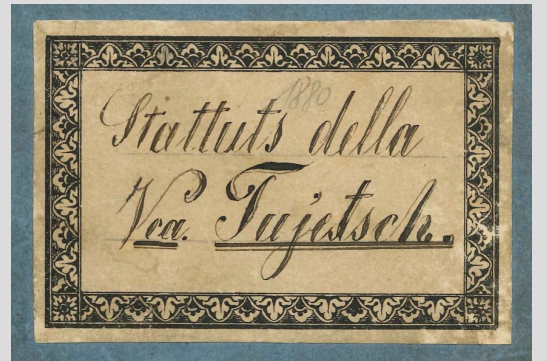 1880
Stattuts della
Vca. Tujetsch.